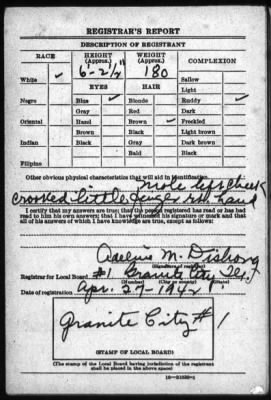 REGISTRAR'S REPORT
DESCRIPTION OF REGISTRANT
RACE HEIGHT (Approx.) WEIGHT (Approx.) COMPLEXION
6'-2½" 180
White ✓ Sallow
EYES HAIR Light
Negro Blue ✓ Blonde Ruddy ✓
Gray Red Dark
Oriental Hazel Brown ✓ Freckled
Brown Black Light brown
Indian Black Gray Dark brown
Bald Black
Filipino
Other obvious physical characteristics that will aid in identification
mole left cheek
crooked little finger rt. hand
I certify that my answers are true; that the person registered has read or has had
read to him his own answers; that I have witnessed his signature or mark and that
all of his answers of which I have knowledge are true, except as follows:
M. Dishong
(Signature of registrar)
Registrar for Local Board #1 Granite City Ill.
(Number) (City or county) (State)
Date of registration Apr. 27-1942
Granite City #1
(STAMP OF LOCAL BOARD)
(The stamp of the Local Board having jurisdiction of the registrant
shall be placed in the above space)